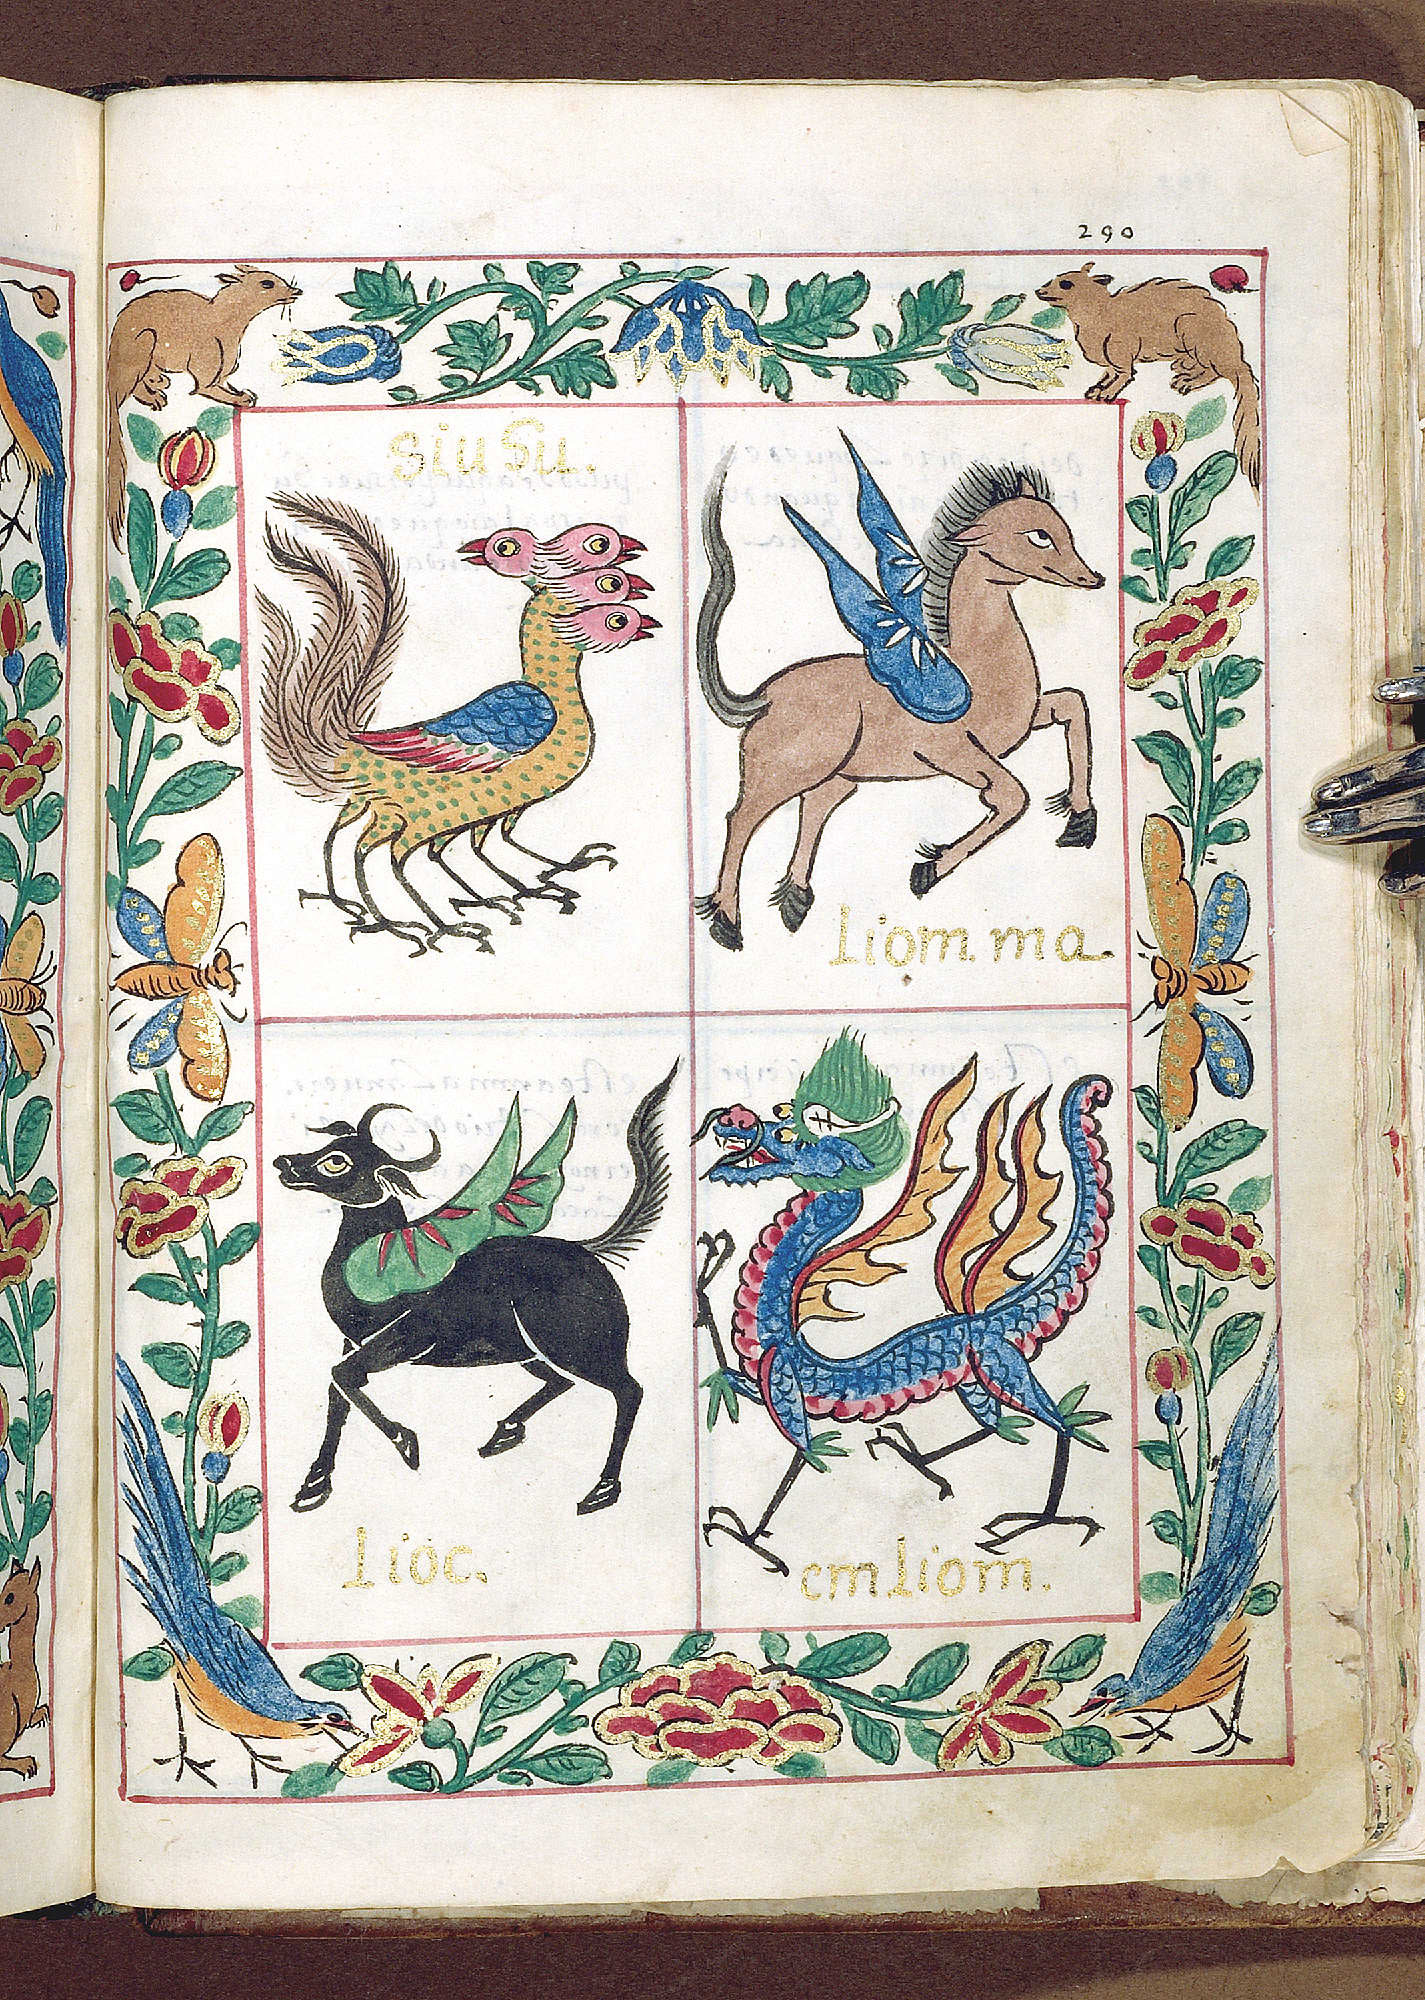 290
siu Su.
liom. ma
lioc.
cm. liom.